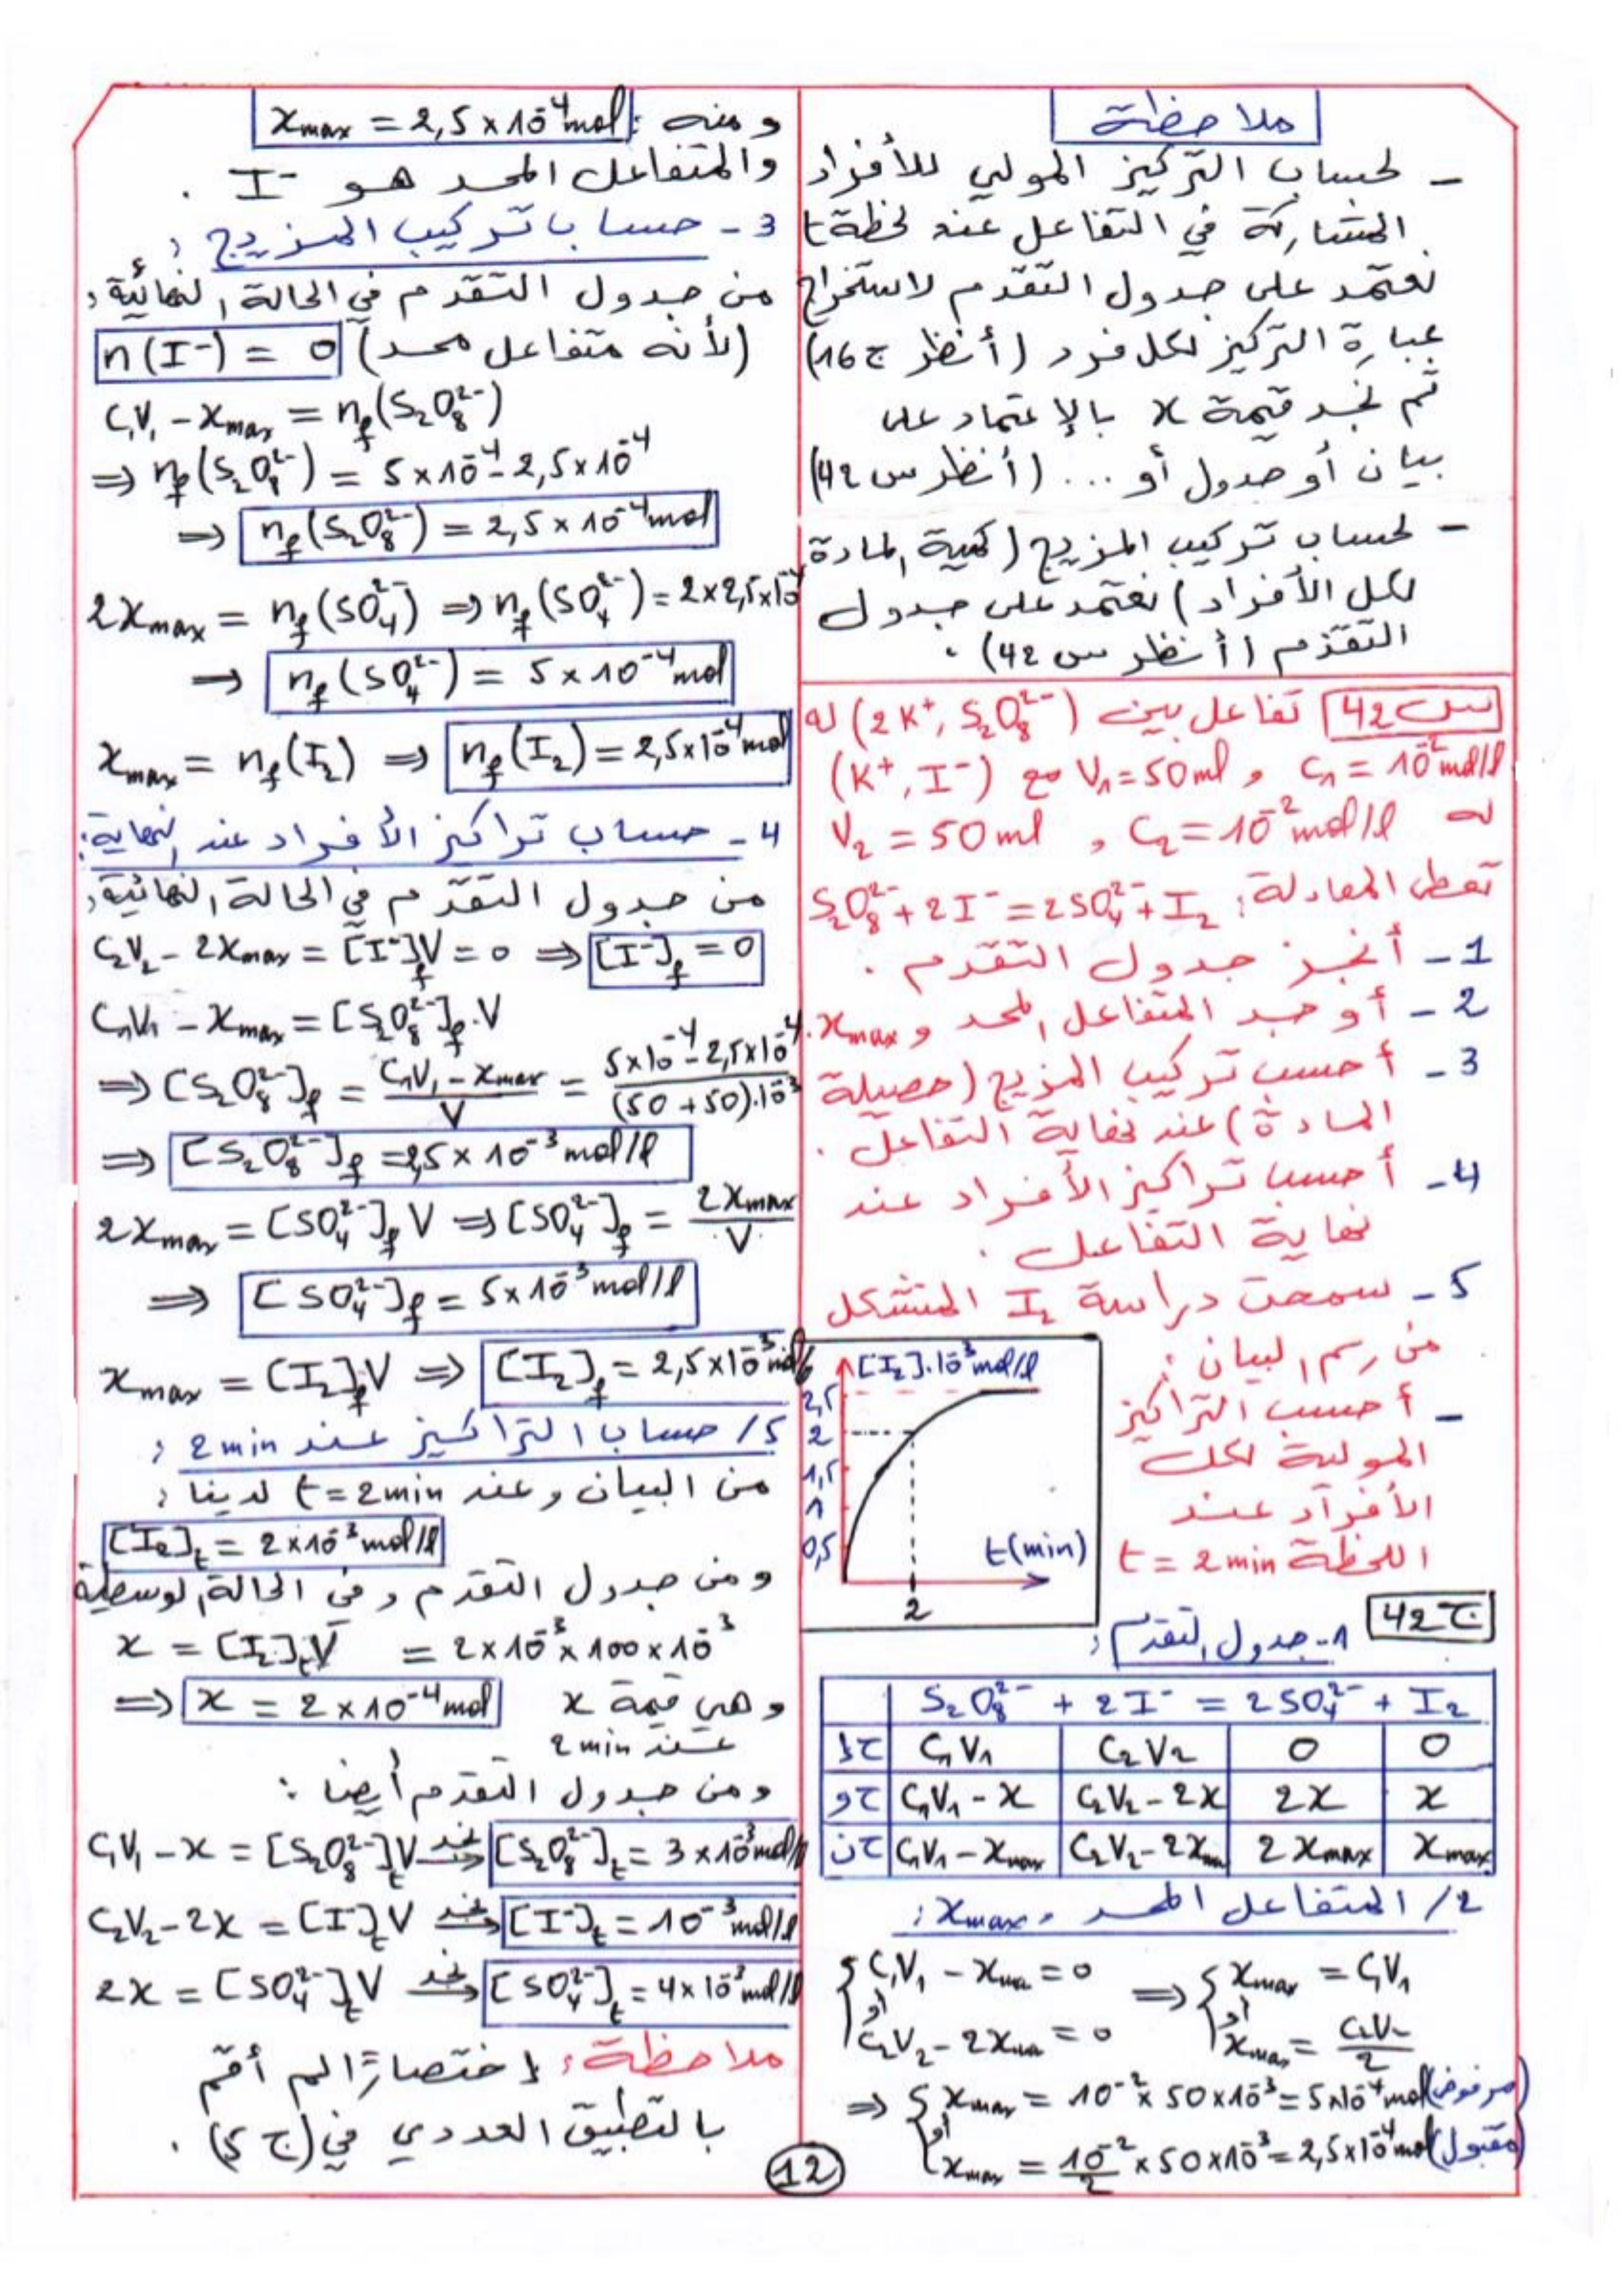 ملاحظة
- لحساب التركيز المولي للأفراد
المشاركة في التفاعل عند لحظة t
نعتمد على جدول التقدم لاستخراج
عبارة التركيز لكل فرد (أنظر ج 16)
ثم نجد قيمة x بالإعتماد على
بيان أو جدول أو ... (أنظر س 42)
- لحساب تركيب المزيج (كمية المادة
لكل الأفراد) نعتمد على جدول
التقدم (أنظر س 42).
س 42 تفاعل بين (2K⁺, S₂O₈²⁻) له
C₁ = 10⁻² mol/l و V₁ = 50 ml مع (K⁺, I⁻)
له C₂ = 10⁻² mol/l , V₂ = 50 ml
تعطى المعادلة: S₂O₈²⁻ + 2I⁻ = 2SO₄²⁻ + I₂
1- أنجز جدول التقدم.
2- أوجد المتفاعل المحد و xmax.
3- أحسب تركيب المزيج (حصيلة
المادة) عند نهاية التفاعل.
4- أحسب تراكيز الأفراد عند
نهاية التفاعل.
5- سمحت دراسة I₂ المتشكل
من رسم البيان:
- أحسب التراكيز
المولية لكل
الأفراد عند
اللحظة t = 2 min
[I₂].10⁻³ mol/l
2,5
2
1,5
1
0,5
t(min)
2
ج 42
1- جدول التقدم:
S₂O₈²⁻ + 2I⁻ = 2SO₄²⁻ + I₂
ح إ C₁V₁ C₂V₂ 0 0
ح و C₁V₁ - x C₂V₂ - 2x 2x x
ح ن C₁V₁ - xmax C₂V₂ - 2xm 2xmax xmax
2/ المتفاعل المحد و xmax:
{ C₁V₁ - xma = 0 ⇒ { xmax = C₁V₁
أو أو
C₂V₂ - 2xma = 0 xmax = C₂V₂/2
⇒ { xmax = 10⁻² × 50 × 10⁻³ = 5×10⁻⁴ mol (مرفوض)
أو
xmax = 10⁻²/2 × 50×10⁻³ = 2,5×10⁻⁴ mol (مقبول)
ومنه: xmax = 2,5 × 10⁻⁴ mol
والمتفاعل المحد هو I⁻.
3- حساب تركيب المزيج:
من جدول التقدم في الحالة النهائية:
(لأنه متفاعل محد) n(I⁻) = 0
C₁V₁ - xmax = nf(S₂O₈²⁻)
⇒ nf(S₂O₈²⁻) = 5×10⁻⁴ - 2,5×10⁻⁴
⇒ nf(S₂O₈²⁻) = 2,5 × 10⁻⁴ mol
2xmax = nf(SO₄²⁻) ⇒ nf(SO₄²⁻) = 2×2,5×10⁻⁴
⇒ nf(SO₄²⁻) = 5 × 10⁻⁴ mol
xmax = nf(I₂) ⇒ nf(I₂) = 2,5×10⁻⁴ mol
4- حساب تراكيز الأفراد عند النهاية:
من جدول التقدم في الحالة النهائية:
C₂V₂ - 2xmax = [I⁻]fV = 0 ⇒ [I⁻]f = 0
C₁V₁ - xmax = [S₂O₈²⁻]f.V
⇒ [S₂O₈²⁻]f = (C₁V₁ - xmax)/V = (5×10⁻⁴ - 2,5×10⁻⁴)/((50+50).10⁻³)
⇒ [S₂O₈²⁻]f = 2,5 × 10⁻³ mol/l
2xmax = [SO₄²⁻]f V ⇒ [SO₄²⁻]f = 2xmax/V
⇒ [SO₄²⁻]f = 5×10⁻³ mol/l
xmax = [I₂]fV ⇒ [I₂]f = 2,5×10⁻³ mol/l
5/ حساب التراكيز عند 2 min:
من البيان و عند t = 2 min لدينا:
[I₂]t = 2×10⁻³ mol/l
ومن جدول التقدم و في الحالة الوسطية
x = [I₂]tV = 2×10⁻³ × 100×10⁻³
⇒ x = 2×10⁻⁴ mol وهي قيمة x
عند 2 min
ومن جدول التقدم أيضا:
C₁V₁ - x = [S₂O₈²⁻]tV نجد⇒ [S₂O₈²⁻]t = 3×10⁻³ mol/l
C₂V₂ - 2x = [I⁻]tV نجد⇒ [I⁻]t = 10⁻³ mol/l
2x = [SO₄²⁻]tV نجد⇒ [SO₄²⁻]t = 4×10⁻³ mol/l
ملاحظة: إختصارًا لم أقم
بالتطبيق العددي في (ج 5).
12